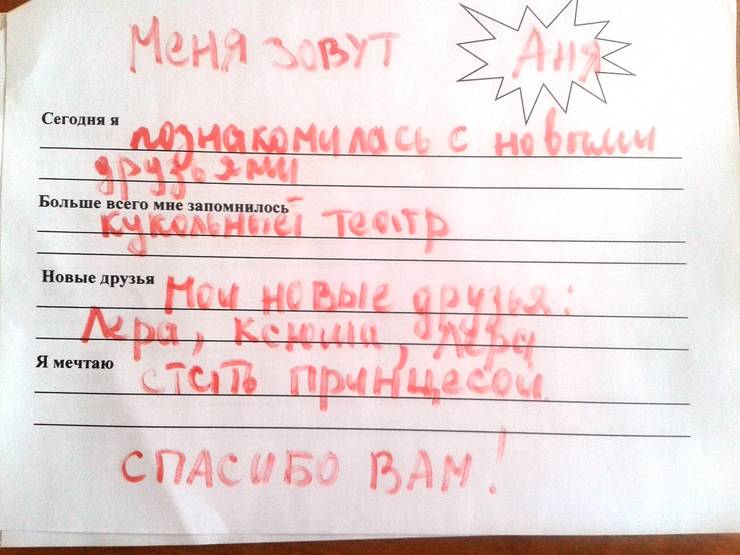 Меня зовут Аня
Сегодня я познакомилась с новыми
друзьями
Больше всего мне запомнилось
кукольный театр
Новые друзья Мои новые друзья:
Лера, Ксюша, Лера
Я мечтаю стать принцесой
СПАСИБО ВАМ!